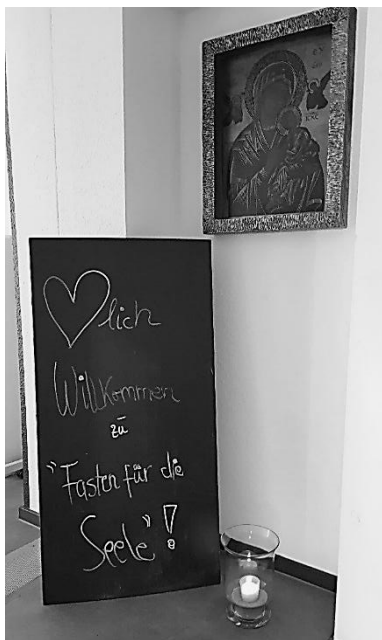 ♡lich
Willkommen
zu
"Fasten für die
Seele"!